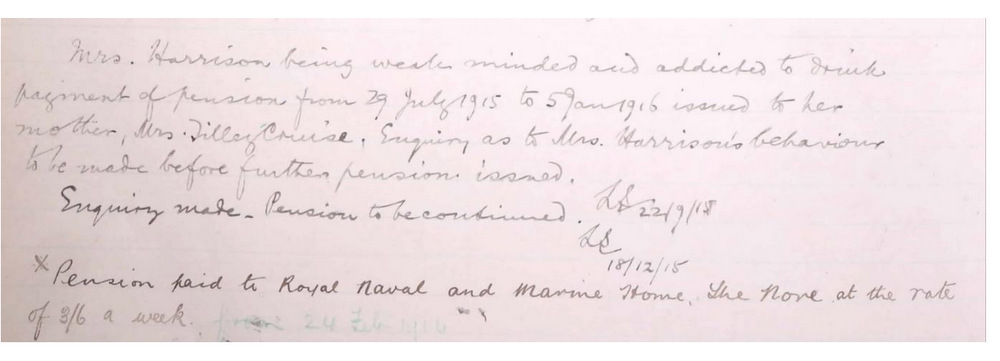 Mrs. Harrison being weak minded and addicted to drink
payment of pension from 29 July 1915 to 5 Jan 1916 issued to her
mother, Mrs. Tilley Cruise. Enquiry as to Mrs. Harrison's behaviour
to be made before further pension issued.
Enquiry made - Pension to be continued. LS 22/9/15
LS
18/12/15
x Pension paid to Royal Naval and Marine Home, The Nore at the rate
of 3/6 a week. from 24 Feb 1916